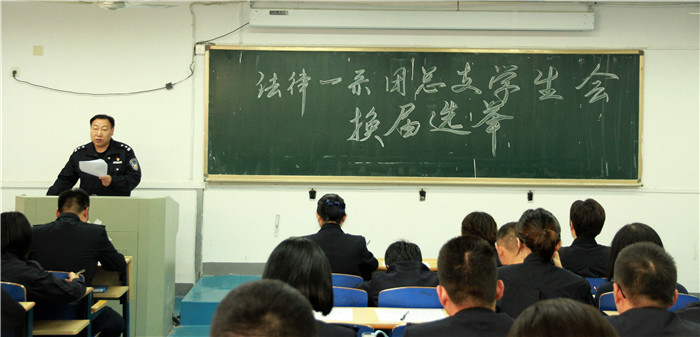 法律一系团总支学生会
换届选举